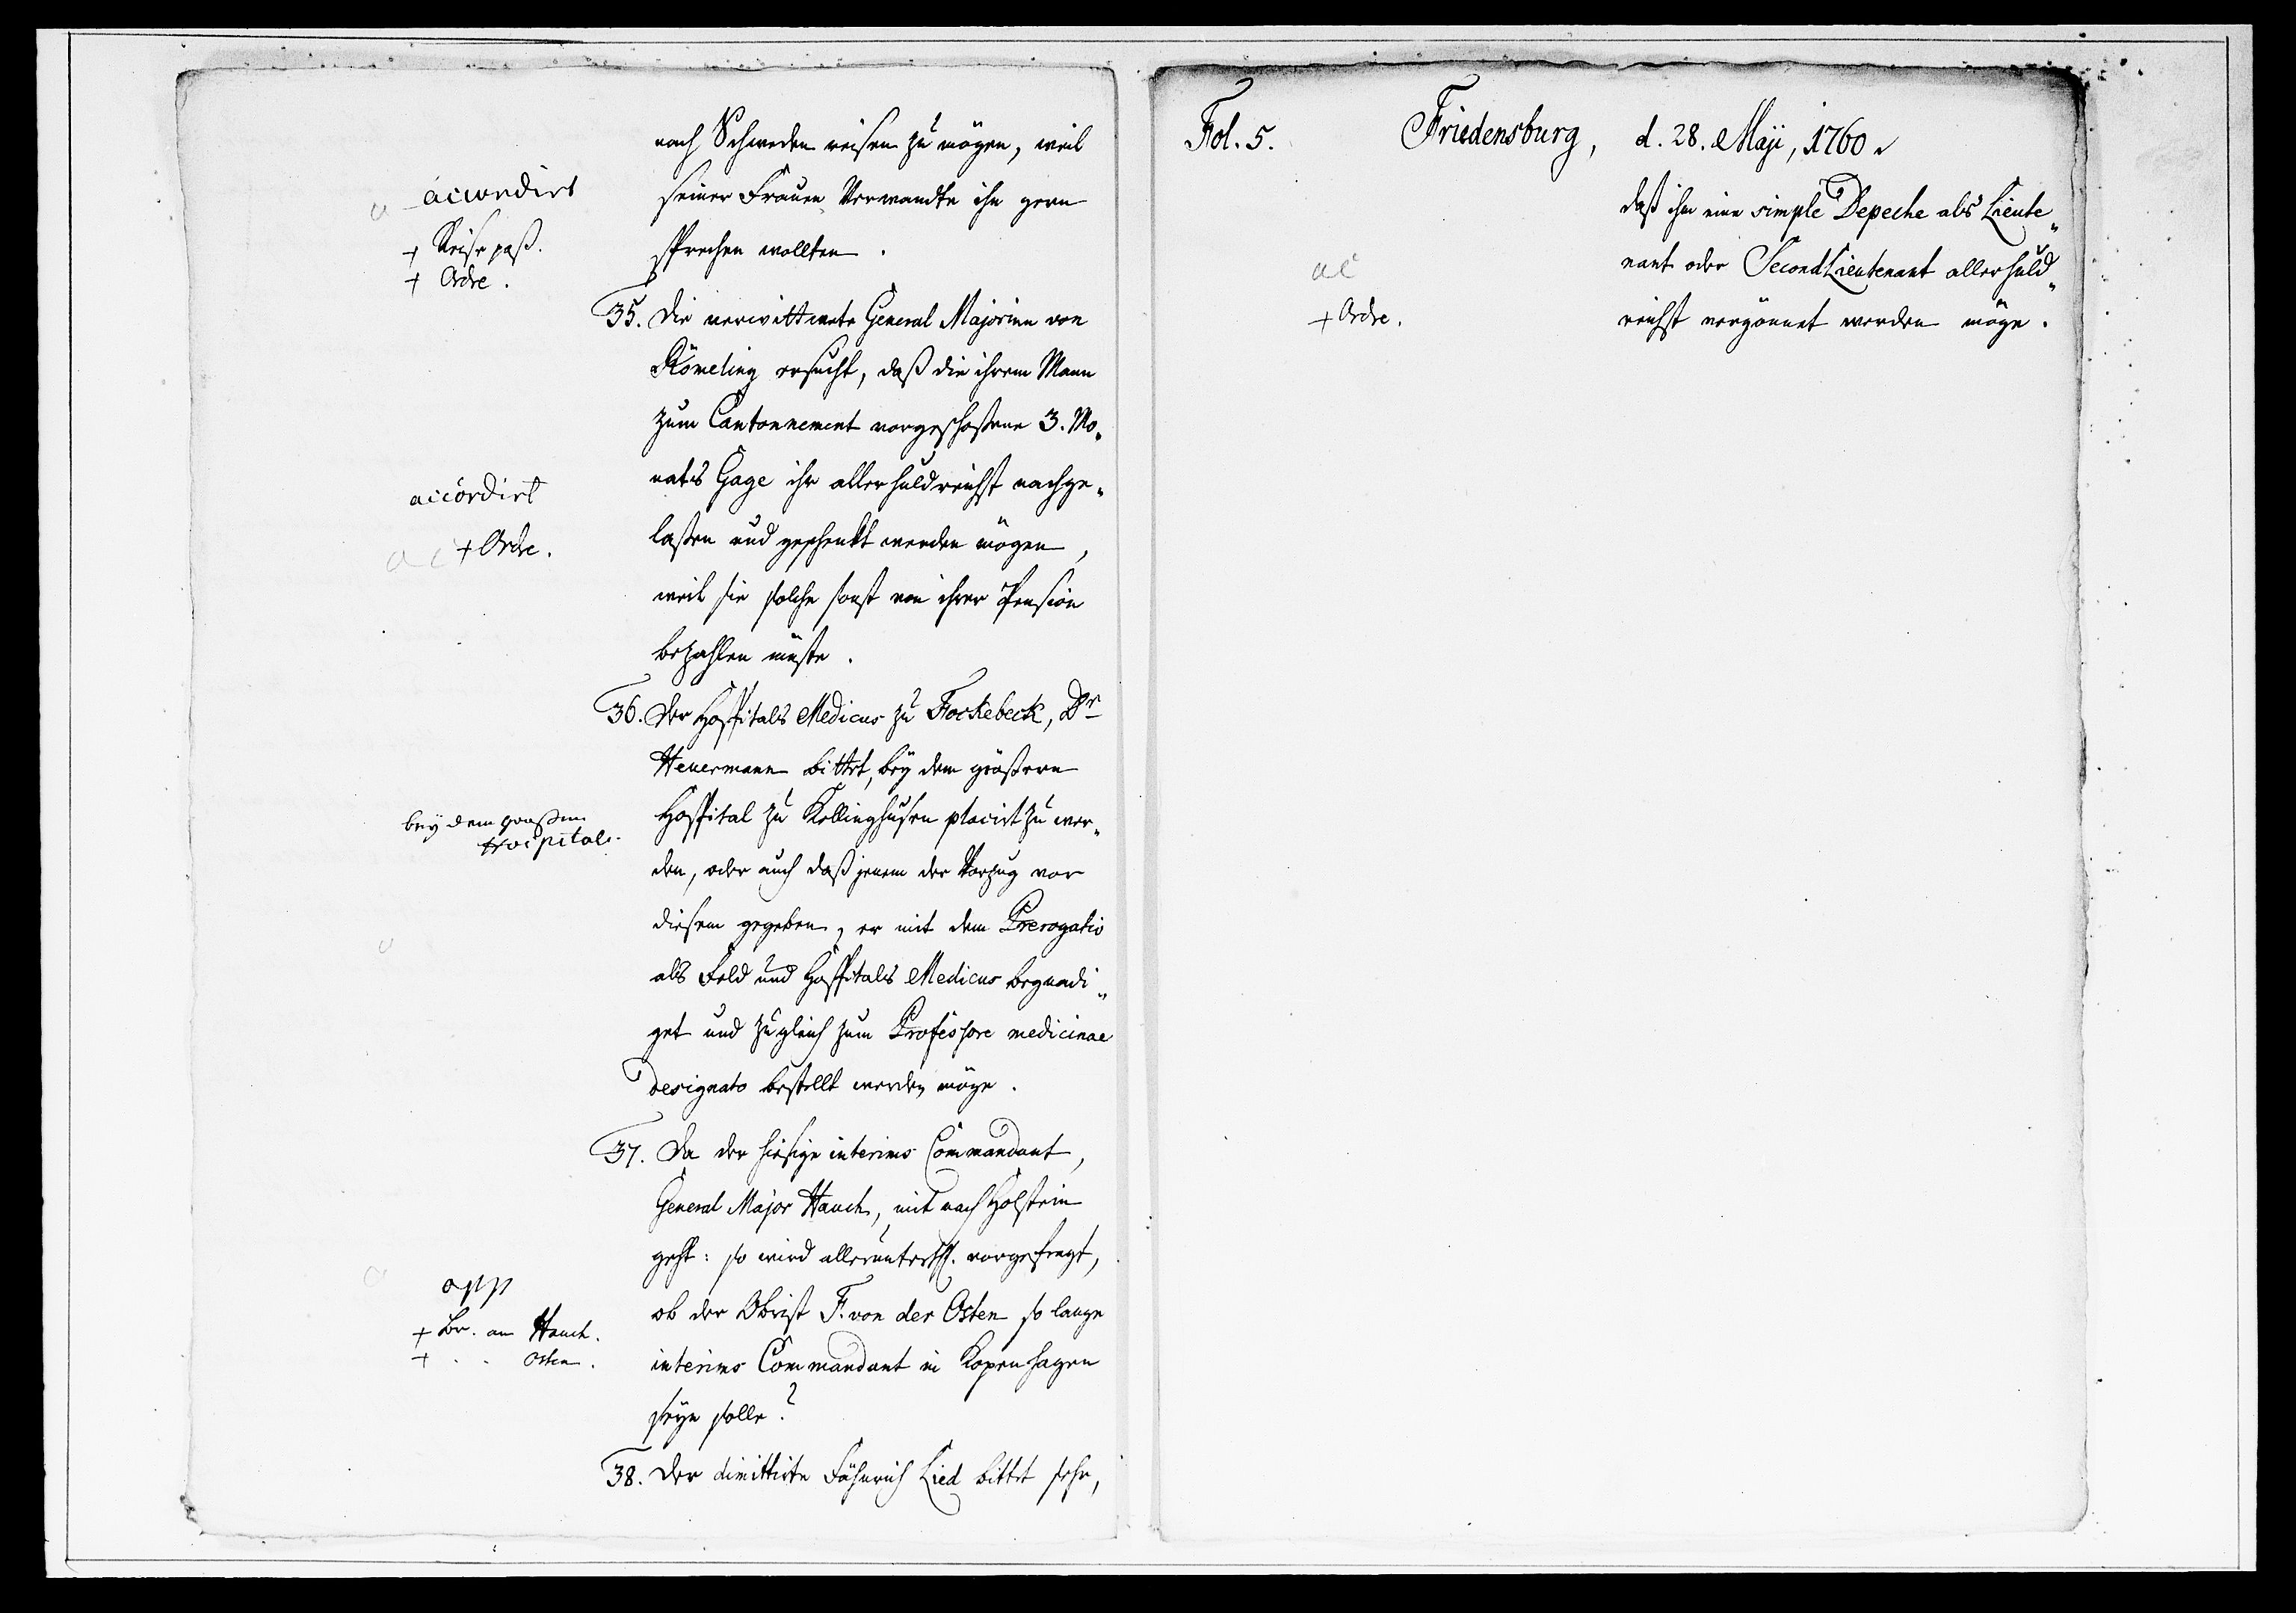 nach Schweden reisen zu mögen, weil
accordirt
seiner Frauen Verwandte ihn gern
+ Reise paß.
sprechen wollten.
+ Ordre.
35. Die verwittwete General Majorinn von
Römeling ersucht, daß die ihrem Mann
zum Cantonnement vorgeschoßene 3. Mo„
nats Gage ihr allerhuldreichst nachge„
accordirt
laßen und geschenkt werden mögen,
+ Ordre.
weil sie solche sonst von ihrer Pension
bezahlen müste.
36. Der Hospitals Medicus zu Fockebeck, Dr
Heuermann bittet, bey dem größern
Hospital zu Kellinghusen placirt zu wer„
bey dem großen
Hospital.
den, oder auch daß jenem der Vorzug vor
diesem gegeben, er mit dem Prerogativ
als Feld und Hospitals Medicus begnadi„
get und zugleich zum Professore medicinae
designato bestellt werden möge.
37. Da der hiesige interims Commandant,
General Major Hauch, mit nach Holstein
geht: so wird alleruntertht. vorgefragt,
app
ob der Obrist F. von der Osten so lange
+ Br. an Hauch.
interims Commandant in Kopenhagen
+ . . Osten.
seyn solle?
38. Der dimittirte Fähnrich Lied bittet sehr,
Fol. 5. Friedensburg, d. 28. Maji, 1760.
daß ihm eine simple Depeche als Lieute„
nant oder SecondLieutenant allerhuld„
ac
reichst vergönnet werden möge.
+ Ordre.